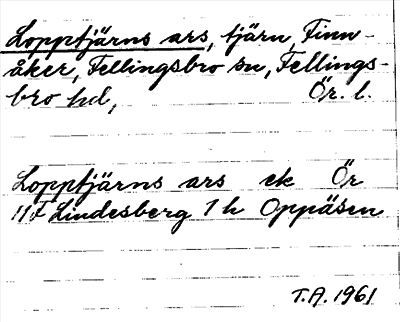 Lopptjärns ars, tjärn, Finn-
åker, Fellingsbro sn, Fellings-
bro hd, Ör. l.
Lopptjärns ars ek Ör
11F Lindesberg 1 h Oppäsen
T.A. 1961